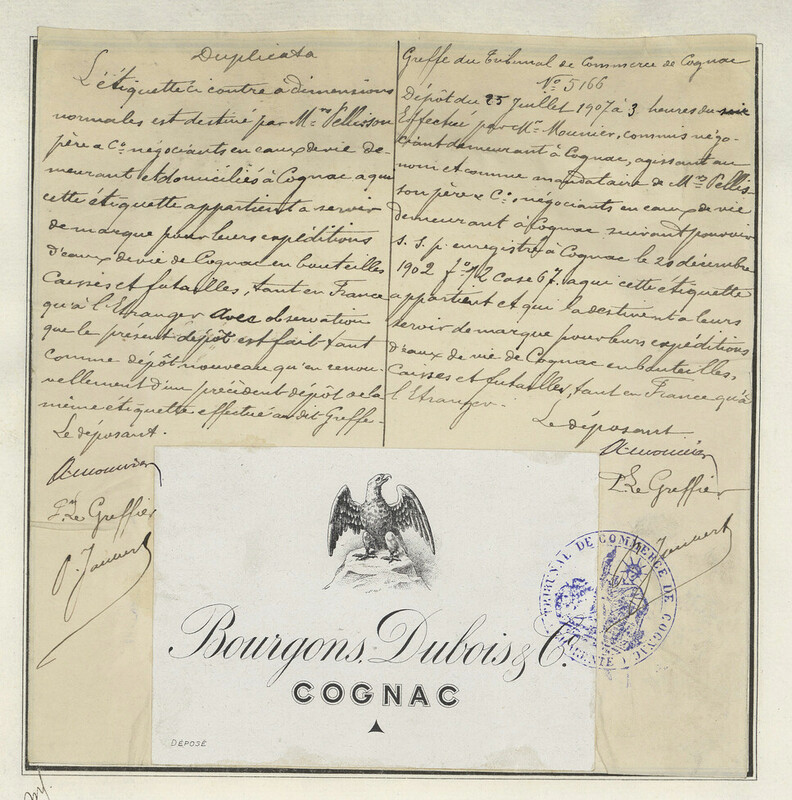 Duplicata
L'étiquette ci contre a dimensions
normales est destiné par Mrs Pellisson
père & Co négociants en eaux de vie de-
meurant et domiciliés à Cognac a qui
cette étiquette appartient a servir
de marque pour leurs expéditions
d'eaux de vie de Cognac en bouteilles
Caisses et futailles, tant en France
qu'à l'Etranger avec observation
que le présent dépôt est fait tant
comme dépôt nouveau qu'en renou-
vellement d'un précédent dépôt de la
même étiquette effectué au dit Greffe-
Le déposant.
P. Le Greffier
Greffe du Tribunal de Commerce de Cognac
No 5166
Dépôt du 25 Juillet 1907 à 3 heures du soir
Effectué par Mr Mounier, commis négo-
ciant demeurant à Cognac, agissant au
nom et comme mandataire de Mrs Pellis-
son père & Co, négociants en eaux de vie
demeurant à Cognac suivant pouvoir
s. s. p. enregistré à Cognac le 20 décembre
1902 fo 12 case 67. a qui cette etiquette
appartient et qui la destinent a leurs
servir de marque pour leurs expéditions
d'eaux de vie de Cognac en bouteilles,
Caisses et futailles, tant en France qu'à
l'Etranger.
Le déposant
P. Le Greffier
Bourgons, Dubois & Co.
COGNAC
DÉPOSÉ
TRIBUNAL DE COMMERCE DE COGNAC
(CHARENTE)